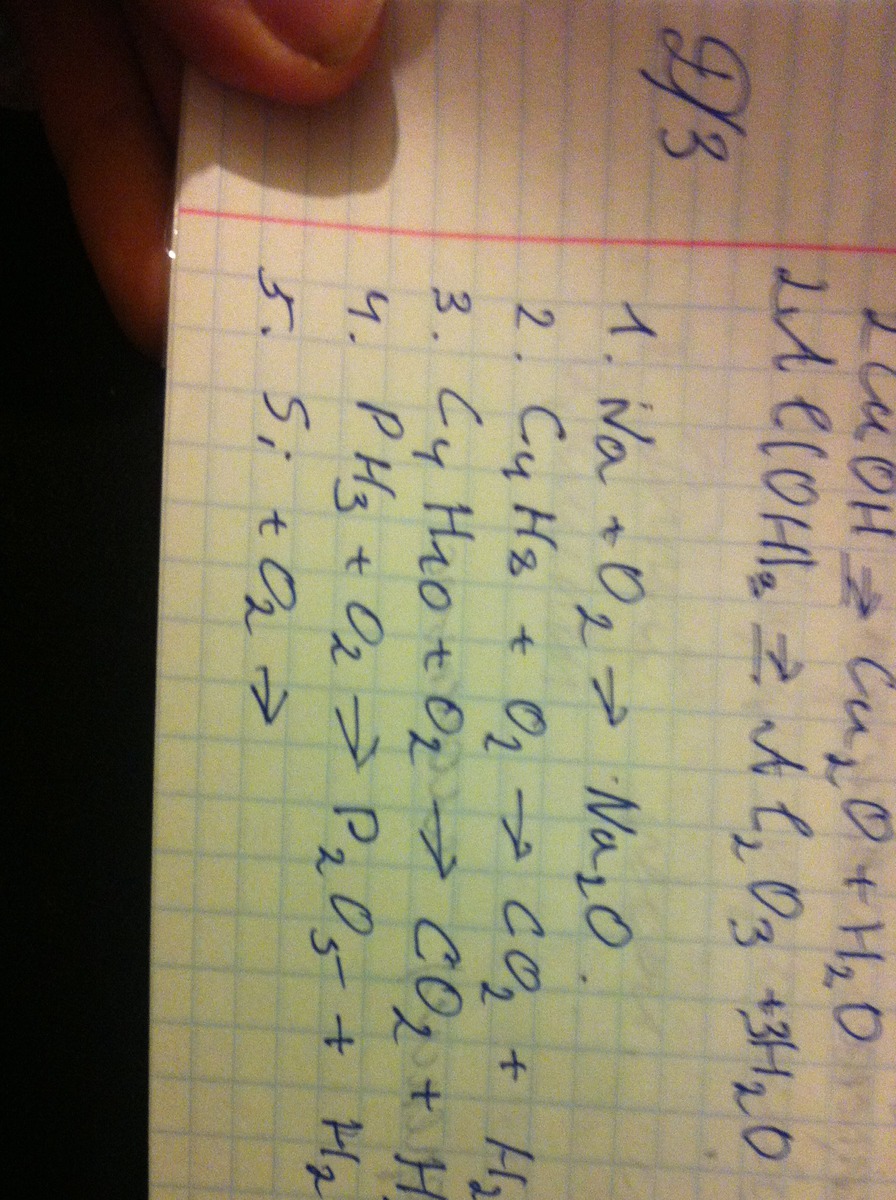 2CuOH → Cu₂O + H₂O
2Al(OH)₃ → Al₂O₃ + 3H₂O
Д/З
1. Na + O₂ → Na₂O.
2. C₄H₈ + O₂ → CO₂ + H₂
3. C₄H₁₀ + O₂ → CO₂ + H
4. PH₃ + O₂ → P₂O₅ + H₂
5. Si + O₂ →